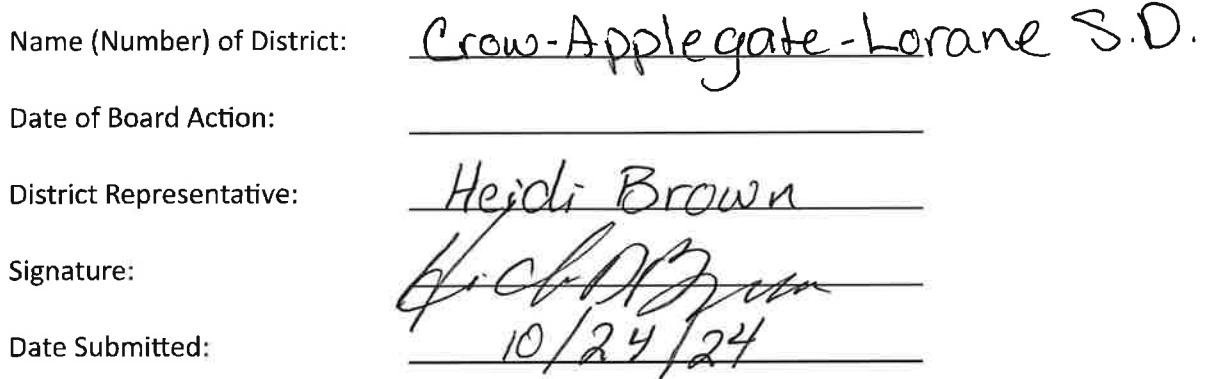 Name (Number) of District: Crow-Applegate-Lorane S.D.
Date of Board Action:
District Representative: Heidi Brown
Signature: Heidi D Brown
Date Submitted: 10/24/24